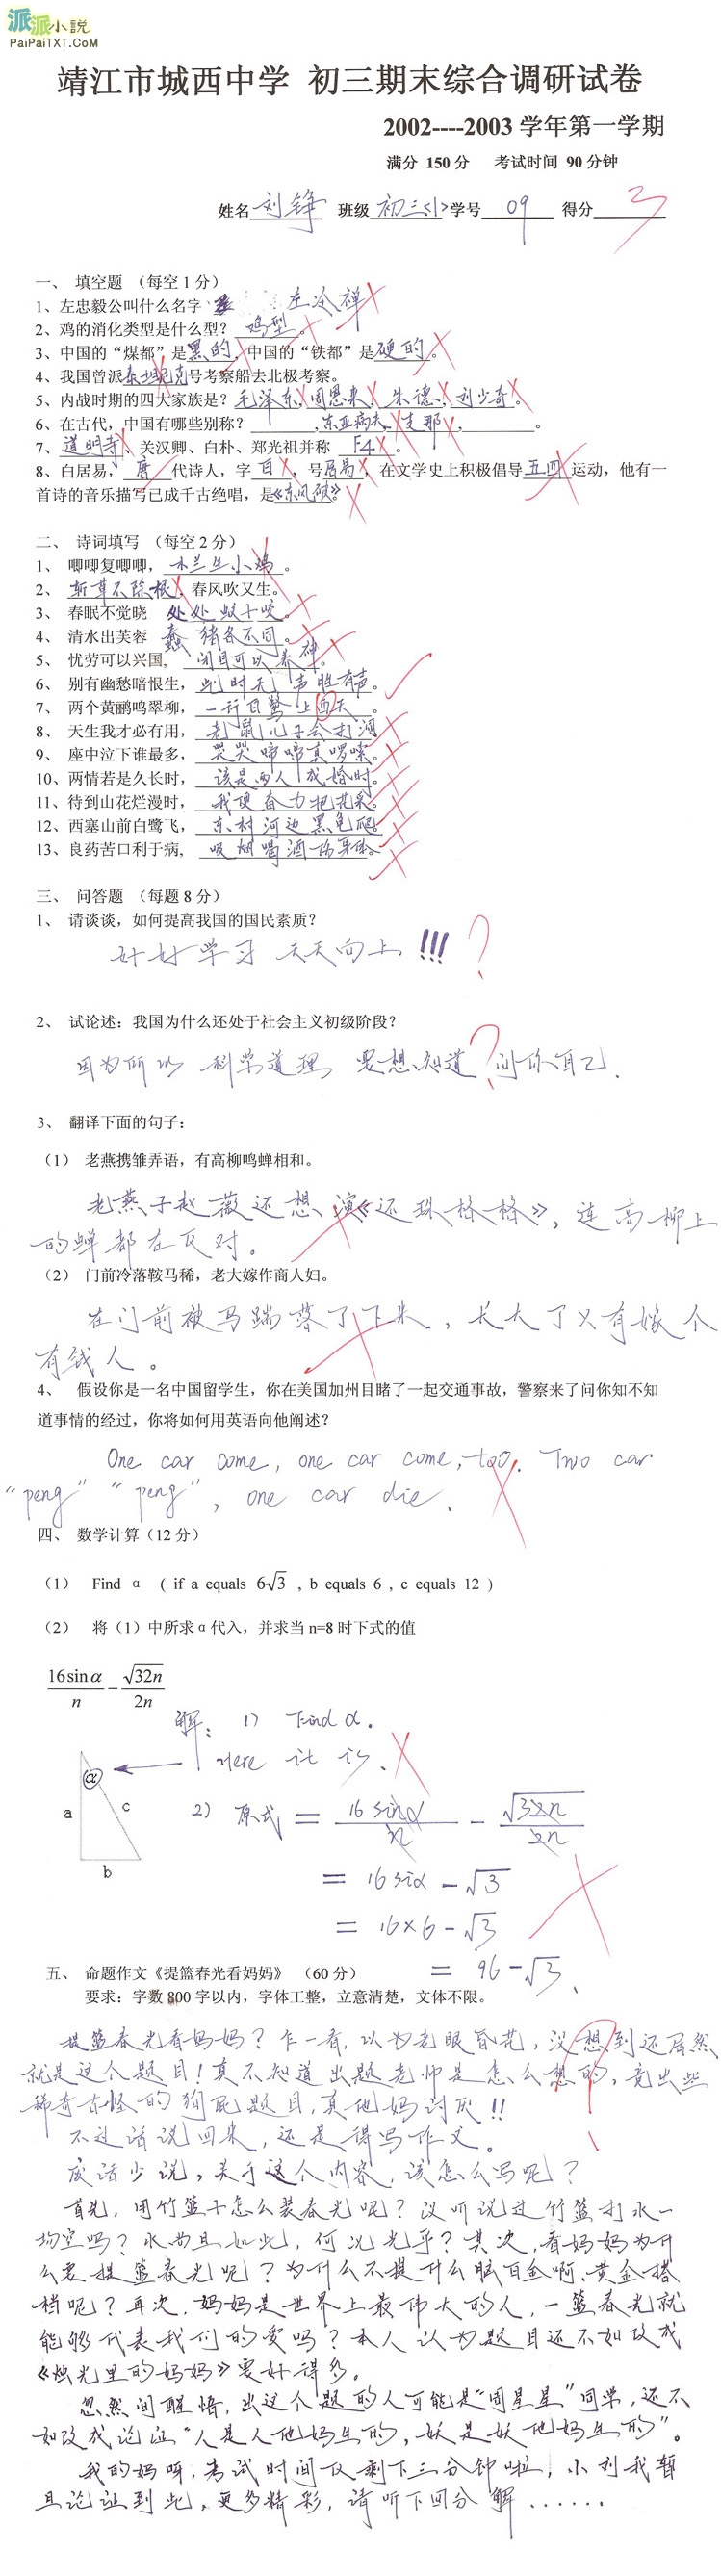 派派小说
PaiPaiTXT.CoM
靖江市城西中学 初三期末综合调研试卷
2002----2003 学年第一学期
满分 150 分 考试时间 90 分钟
姓名 刘铮 班级 初三<1> 学号 09 得分 3
一、 填空题 （每空 1 分）
1、左忠毅公叫什么名字 左冷禅
2、鸡的消化类型是什么型？ 鸡型 。
3、中国的“煤都”是黑的，中国的“铁都”是硬的。
4、我国曾派泰坦尼克号考察船去北极考察。
5、内战时期的四大家族是？毛泽东、周恩来、朱德、刘少奇。
6、在古代，中国有哪些别称？ ，东亚病夫，支那， 。
7、道明寺、关汉卿、白朴、郑光祖并称 F4 。
8、白居易，唐代诗人，字白，号居易，在文学史上积极倡导五四运动，他有一
首诗的音乐描写已成千古绝唱，是《东风破》
二、 诗词填写 （每空 2 分）
1、 唧唧复唧唧，木兰生小鸡。
2、 斩草不除根，春风吹又生。
3、 春眠不觉晓 处处蚊子咬。
4、 清水出芙蓉 蠢猪各不同。
5、 忧劳可以兴国， 闭目可以养神。
6、 别有幽愁暗恨生，此时无声胜有声。
7、 两个黄鹂鸣翠柳，一行白鹭上西天。
8、 天生我才必有用，老鼠儿子会打洞
9、 座中泣下谁最多，哭哭啼啼真啰嗦。
10、两情若是久长时，该是两人成婚时。
11、待到山花烂漫时，我便奋力把花采。
12、西塞山前白鹭飞，东村河边黑龟爬。
13、良药苦口利于病, 吸烟喝酒伤身体。
三、 问答题 （每题 8 分）
1、 请谈谈，如何提高我国的国民素质？
好好学习 天天向上 !!! ?
2、 试论述：我国为什么还处于社会主义初级阶段？
因为所以 科学道理 要想知道 ? 问你自己.
3、 翻译下面的句子：
（1） 老燕携雏弄语，有高柳鸣蝉相和。
老燕子赵薇还想演《还珠格格》，连高柳上
的蝉都在反对。
（2） 门前冷落鞍马稀，老大嫁作商人妇。
在门前被马踹落了下来，长大了只有嫁个
有钱人。
4、 假设你是一名中国留学生，你在美国加州目睹了一起交通事故，警察来了问你知不知
道事情的经过，你将如何用英语向他阐述？
One car come, one car come, too. Two car
"peng" "peng", one car die.
四、 数学计算（12 分）
（1） Find α ( if a equals 6√3 , b equals 6 , c equals 12 )
（2） 将（1）中所求α代入，并求当 n=8 时下式的值
16sinα/n − √32n/2n
解： 1） Find α.
Here it is.
α
a c
b
2） 原式 = 16 sinα/n − √32n/2n
= 16 siα − √3
= 16×6 − √3
= 96 − √3 .
五、 命题作文《提篮春光看妈妈》 （60 分）
要求：字数 800 字以内，字体工整，立意清楚，文体不限。
提篮春光看妈妈？乍一看，以为老眼昏花，没想到还居然
就是这个题目！真不知道出题老师是怎么想的，竟出些
稀奇古怪的狗屁题目，真他妈讨厌!!
不过话说回来，还是得写作文。
废话少说，关于这个内容，该怎么写呢？
首先，用竹篮子怎么装春光呢？没听说过竹篮打水一
场空吗？水尚且如此，何况光乎？其次，看妈妈为什
么要提篮春光呢？为什么不提什么脑白金啊、黄金搭
档呢？再次，妈妈是世界上最伟大的人，一篮春光就
能够代表我们的爱吗？本人认为题目还不如改成
《烛光里的妈妈》要好得多。
忽然间醒悟，出这个题的人可能是“周星星”同学，还不
如改成论证“人是人他妈生的，妖是妖他妈生的”。
我的妈呀，考试时间仅剩下三分钟啦，小刘我暂
且论证到此，更多精彩，请听下回分解......